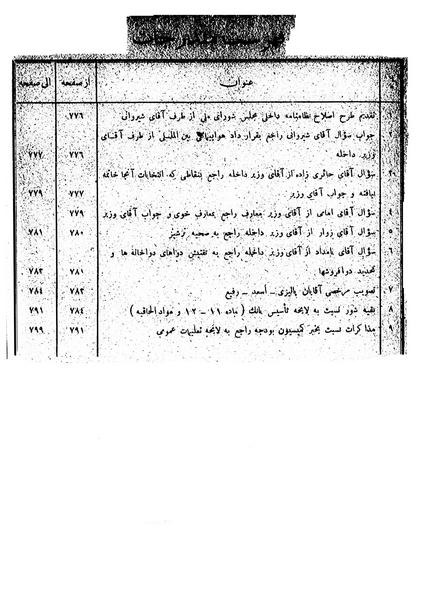 فهرست مندرجات
عنوان از صفحه الی صفحه
۱ تقدیم طرح اصلاح نظامنامه داخلی مجلس شورای ملی از طرف آقای شیروانی ۷۷۶
۲ جواب سؤال آقای شیروانی راجع بقرار داد هواپیمائی بین المللی از طرف آقای
وزیر داخله ۷۷۶ ۷۷۷
۳ سؤال آقای حائری زاده از آقای وزیر داخله راجع بنقاطی که انتخابات آنجا خاتمه
نیافته و جواب آقای وزیر ۷۷۷ ۷۷۹
۴ سؤال آقای امامی از آقای وزیر معارف راجع بمعارف خوی و جواب آقای وزیر ۷۷۹
۵ سؤال آقای زوار از آقای وزیر داخله راجع به صحیه ترشیز ۷۸۰ ۷۸۱
۶ سؤال آقای بامداد از آقای وزیر داخله راجع به تفتیش دواهای دواخانه ها و
تحدید دوافروشها ۷۸۱ ۷۸۳
۷ تصویب مرخصی آقایان پالیزی ـ اسعد ـ رفیع ۷۸۳ ۷۸۴
۸ بقیه شور نسبت به لایحه تأسیس بانک ( ماده ۱۱ ـ ۱۲ و مواد الحاقیه ) ۷۸۴ ۷۹۱
۹ مذاکرات نسبت بخبر کمیسیون بودجه راجع به لایحه تعلیمات عمومی ۷۹۱ ۷۹۹